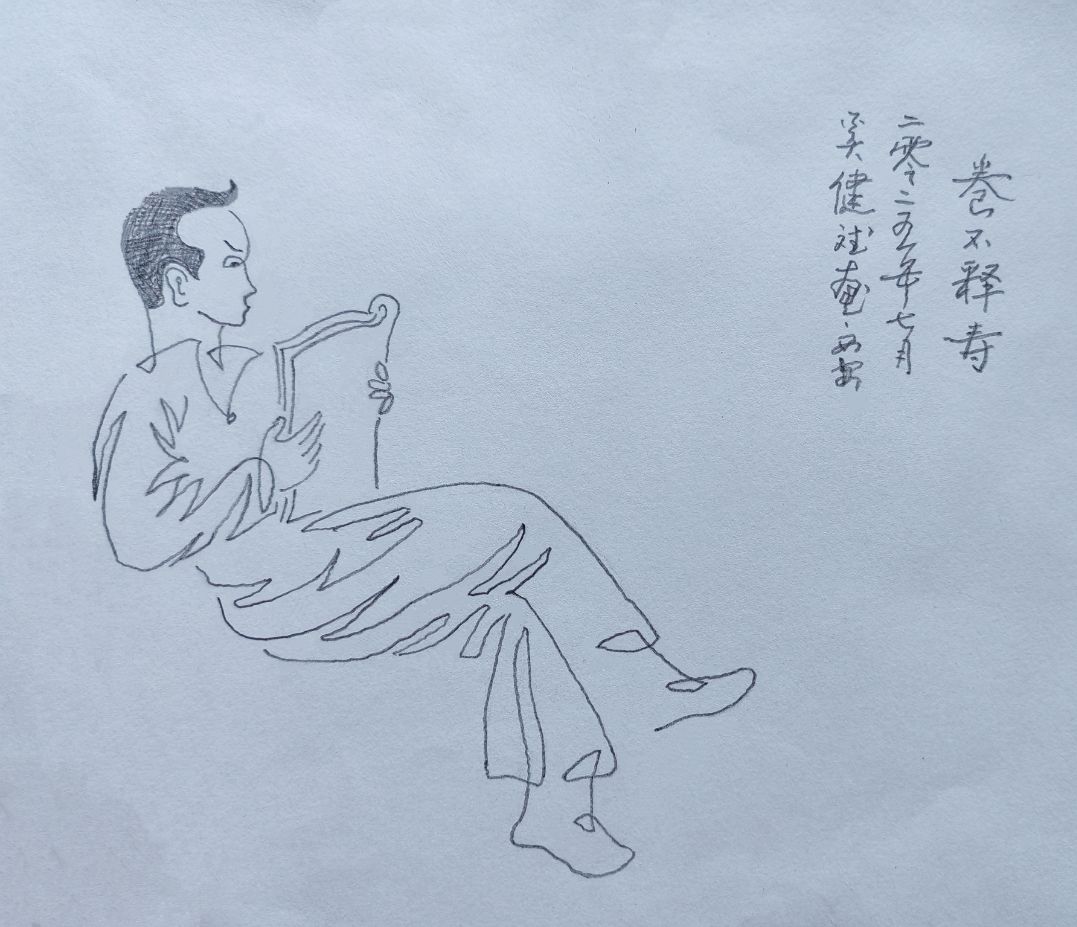 卷不释寿
二零二五年七月
吴健斌画西安